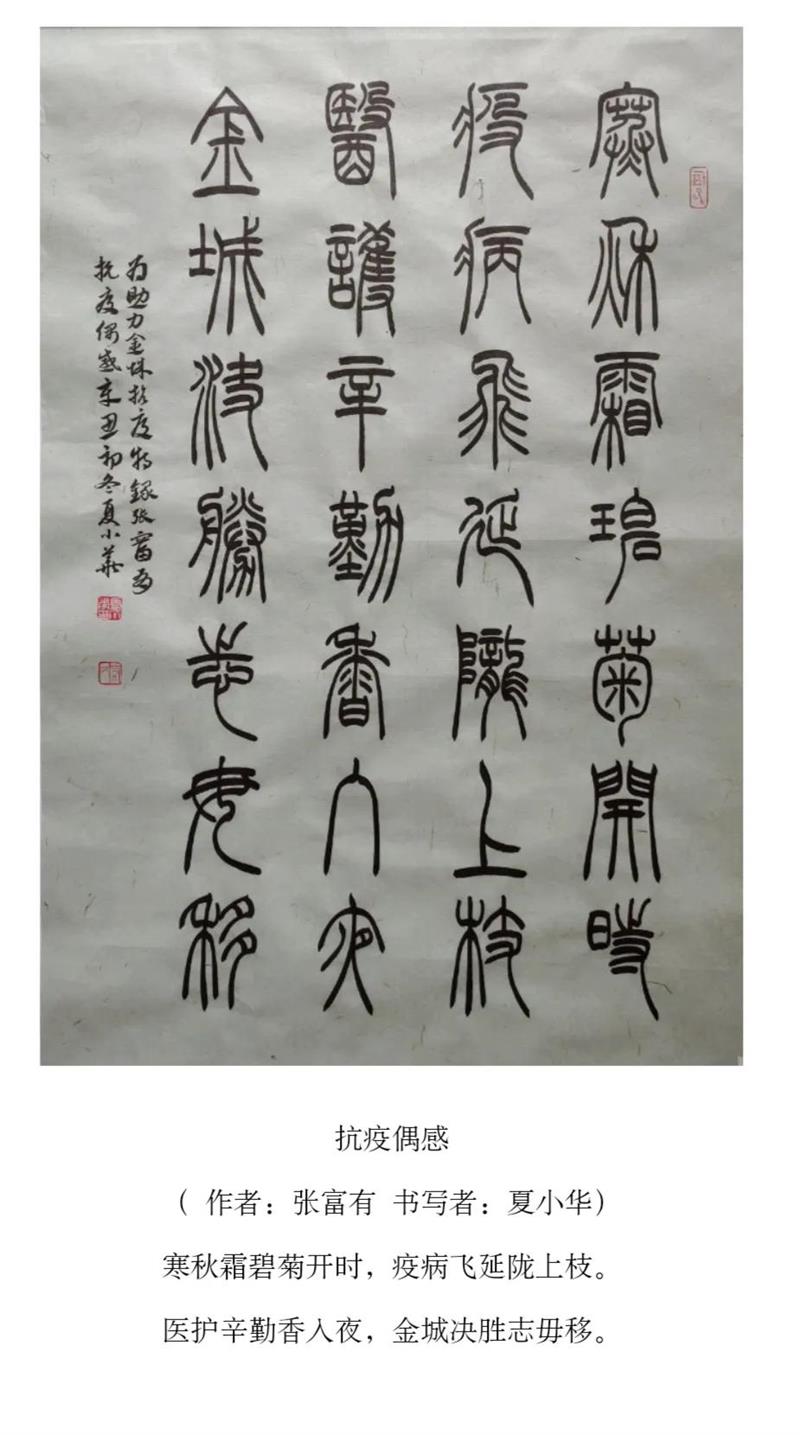 寒秌霜碧菊開時
疫病飛延隴上枝
醫護辛勤香入夜
金城決勝志毋移
为助力金城抗疫特録张富有
抗疫偶感辛丑初冬夏小華
抗疫偶感
（ 作者：张富有 书写者：夏小华）
寒秋霜碧菊开时，疫病飞延陇上枝。
医护辛勤香入夜，金城决胜志毋移。